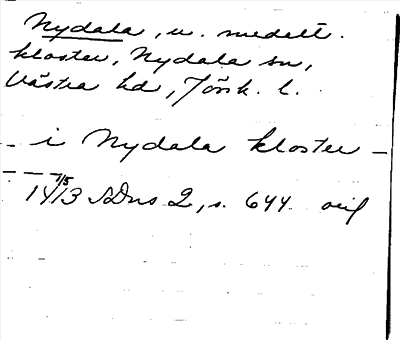 Nydala, u. medelt.
kloster, Nydala sn,
Västra hd, Jönk. l.
- i Nydala kloster -
- - -
14 1/5 13 SDns 2, s. 644 orig